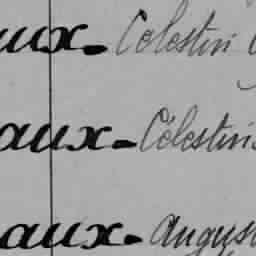 aux - Célestin
aux - Célestin
aux - Augus